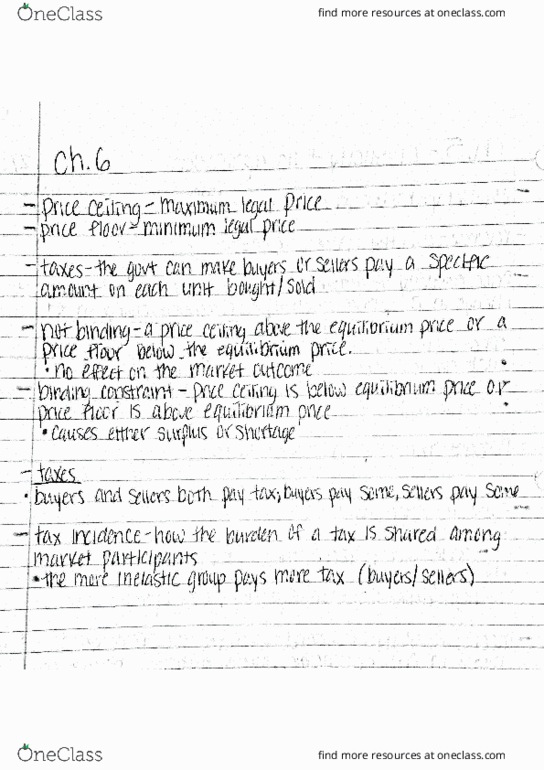 OneClass
find more resources at oneclass.com
Ch.6
- price ceiling - maximum legal price
- price floor - minimum legal price
- taxes - the govt can make buyers or sellers pay a specific
amount on each unit bought/sold
- not binding - a price ceiling above the equilibrium price or a
price flour below the equilibrium price.
• no effect on the market outcome
- binding constraint - price ceiling is below equilibrium price or
price floor is above equilibriam price
• causes either surplus or shortage
- taxes
• buyers and sellers both pay tax, buyers pay some, sellers pay some
- tax incidence - how the burden of a tax is shared among
market participants
• the more inelastic group pays more tax (buyers/sellers)
OneClass
find more resources at oneclass.com